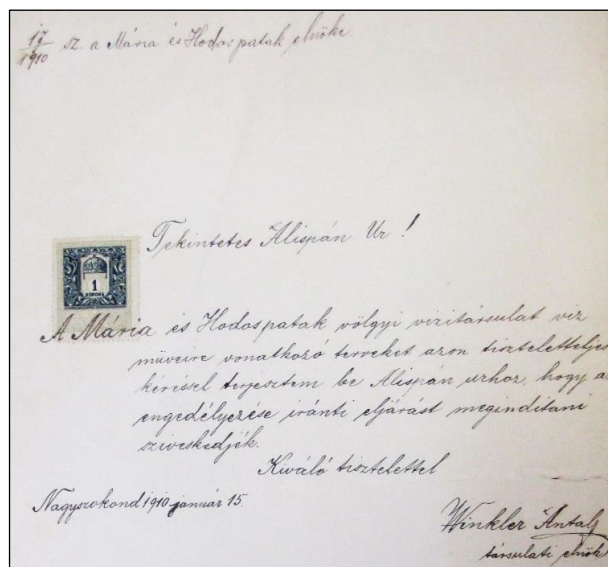 17/1910 sz. a Mária és Hodos patak elnöke.
Tekintetes Alispán Ur!
1
KORONA
A Mária és Hodospatak völgyi vizitársulat víz
müveire vonatkozó terveket azon tiszteletteljes
kéréssel terjesztem be Alispán urhoz, hogy a
engedélyezése iránti eljárást meginditani
sziveskedjék.
Kiváló tisztelettel
Nagyszokond 1910 január 15.
Winkler Antal
társulati elnök